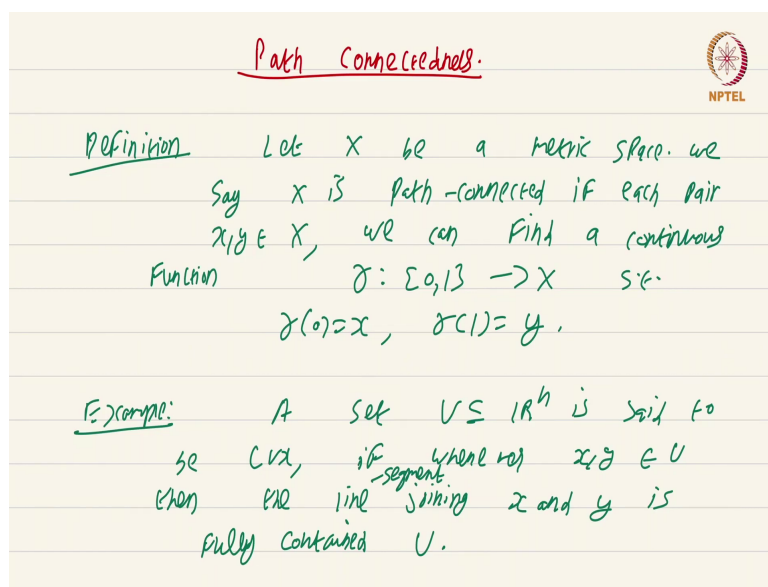 Path Connectedness.
NPTEL
Definition Let X be a metric space. we
say X is path-connected if each pair
x,y ∈ X, we can find a continuous
Function γ: [0,1] -> X s.t.
γ(0)=x, γ(1)= y.
Example: A set U ⊆ IRⁿ is said to
be cvx, if whenever x,y ∈ U
-segment
then the line joining x and y is
fully contained U.